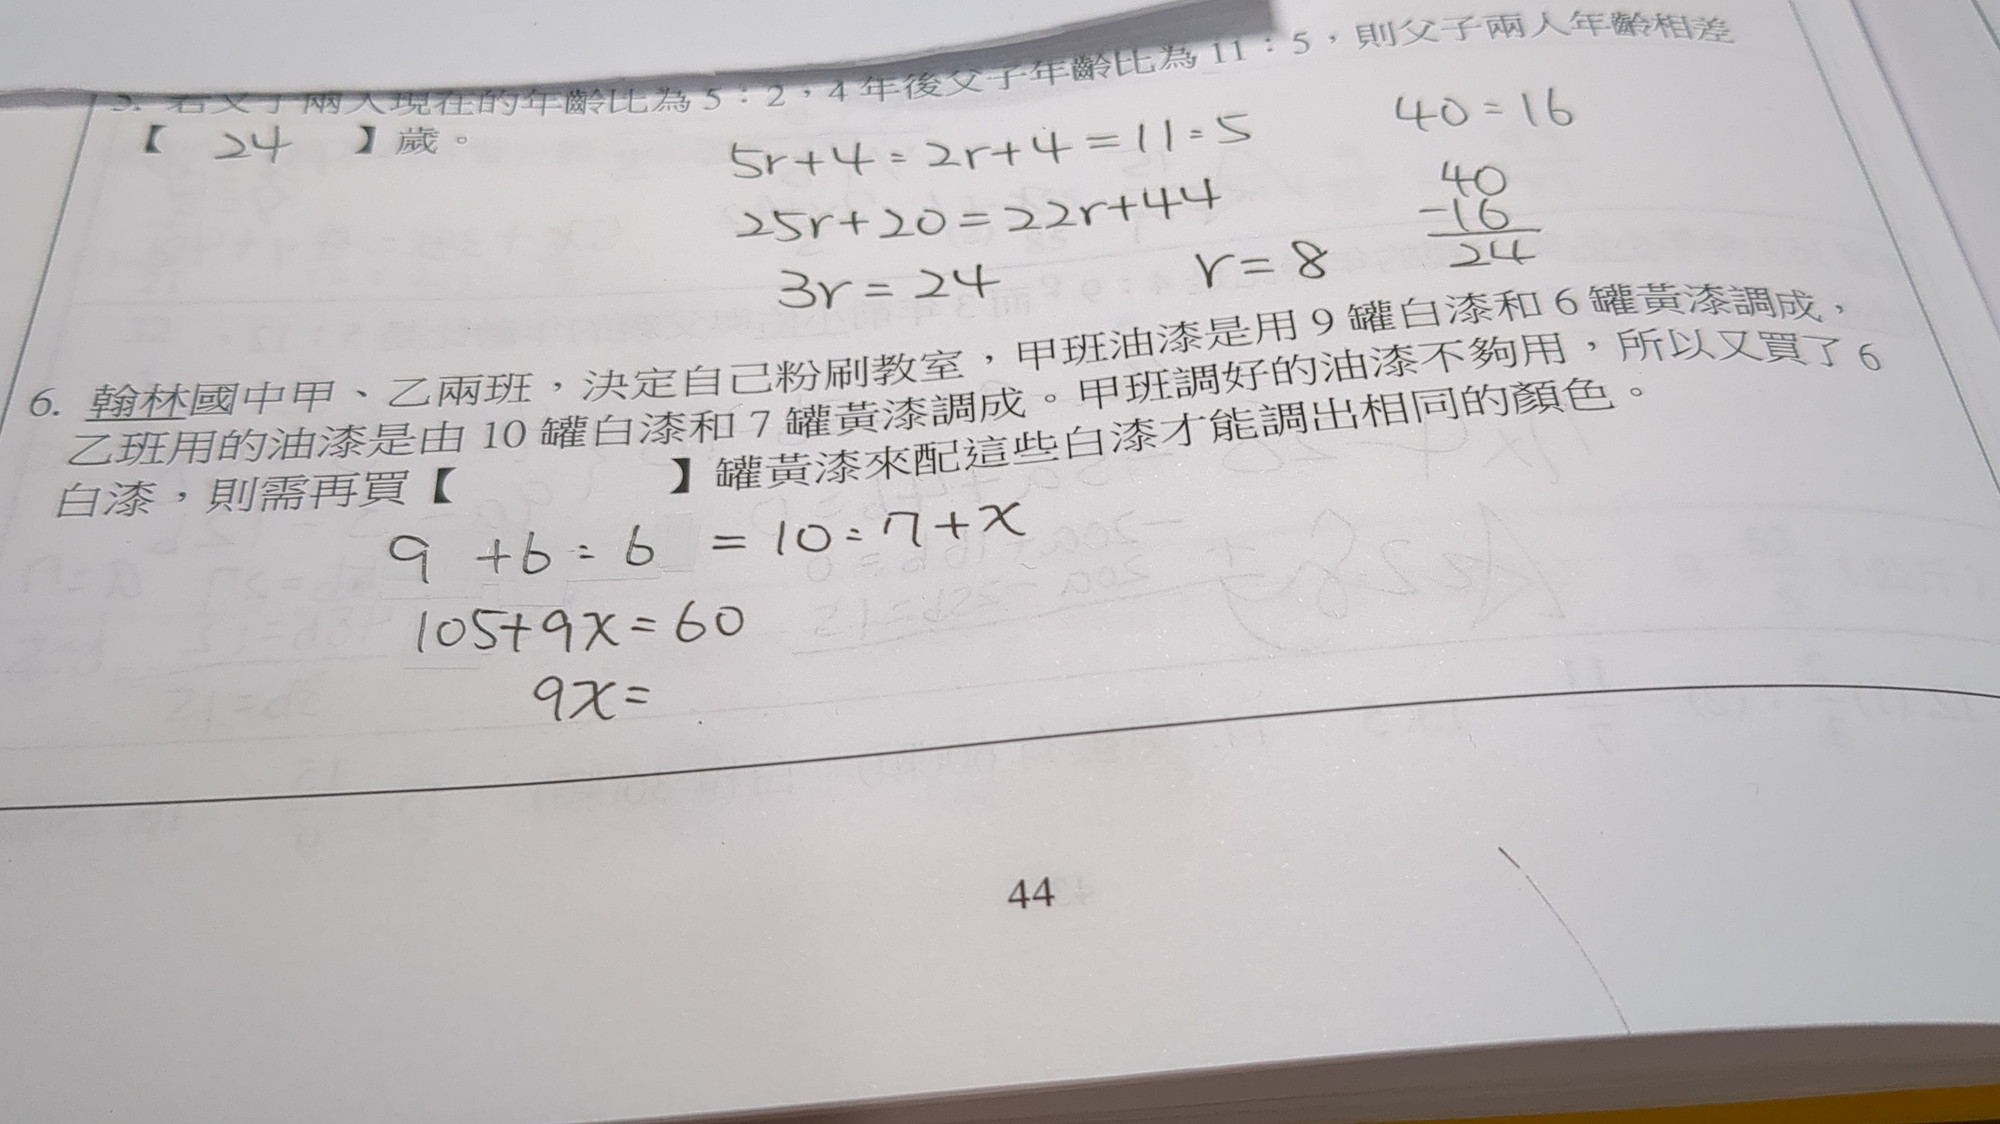 5. 若父子兩人現在的年齡比為 5：2，4 年後父子年齡比為 11：5，則父子兩人年齡相差
【 24 】歲。
5r+4=2r+4=11=5
25r+20=22r+44
3r=24
r=8
40=16
40
-16
24
6. 翰林國中甲、乙兩班，決定自己粉刷教室，甲班油漆是用 9 罐白漆和 6 罐黃漆調成，
乙班用的油漆是由 10 罐白漆和 7 罐黃漆調成。甲班調好的油漆不夠用，所以又買了 6
白漆，則需再買【 】罐黃漆來配這些白漆才能調出相同的顏色。
9 +6=6 =10=7+x
105+9x=60
9x=
44